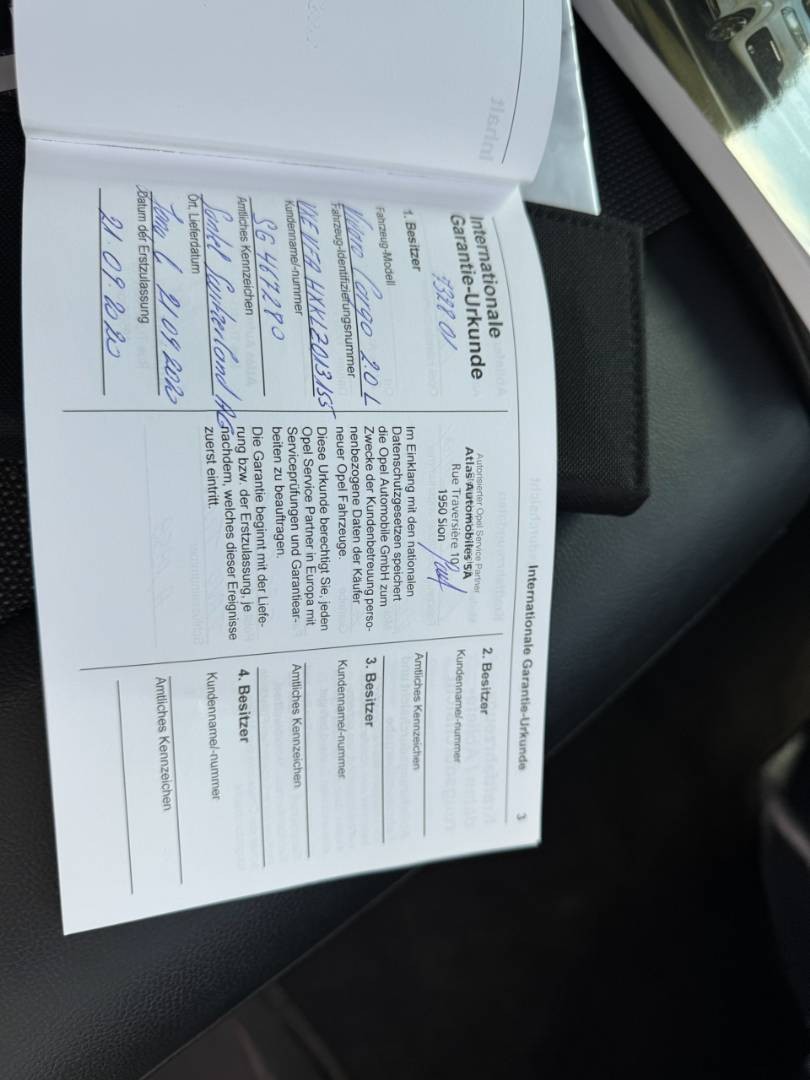 Internationale Garantie-Urkunde 3
Internationale
Garantie-Urkunde
732801
1. Besitzer
Fahrzeug-Modell
Vivaro Cargo 2.0 L
Fahrzeug-Identifizierungsnummer
Kundenname/-nummer
SG 467280
Amtliches Kennzeichen
AG
Ort, Lieferdatum
21 09 2020
Datum der Erstzulassung
21.09.2020
Autorisierter Opel Service Partner
Atlas Automobiles SA
Rue Traversière 10
1950 Sion
Im Einklang mit den nationalen
Datenschutzgesetzen speichert
die Opel Automobile GmbH zum
Zwecke der Kundenbetreuung perso-
nenbezogene Daten der Käufer
neuer Opel Fahrzeuge.
Diese Urkunde berechtigt Sie, jeden
Opel Service Partner in Europa mit
Serviceprüfungen und Garantiear-
beiten zu beauftragen.
Die Garantie beginnt mit der Liefe-
rung bzw. der Erstzulassung, je
nachdem, welches dieser Ereignisse
zuerst eintritt.
2. Besitzer
Kundenname/-nummer
Amtliches Kennzeichen
3. Besitzer
Kundenname/-nummer
Amtliches Kennzeichen
4. Besitzer
Kundenname/-nummer
Amtliches Kennzeichen